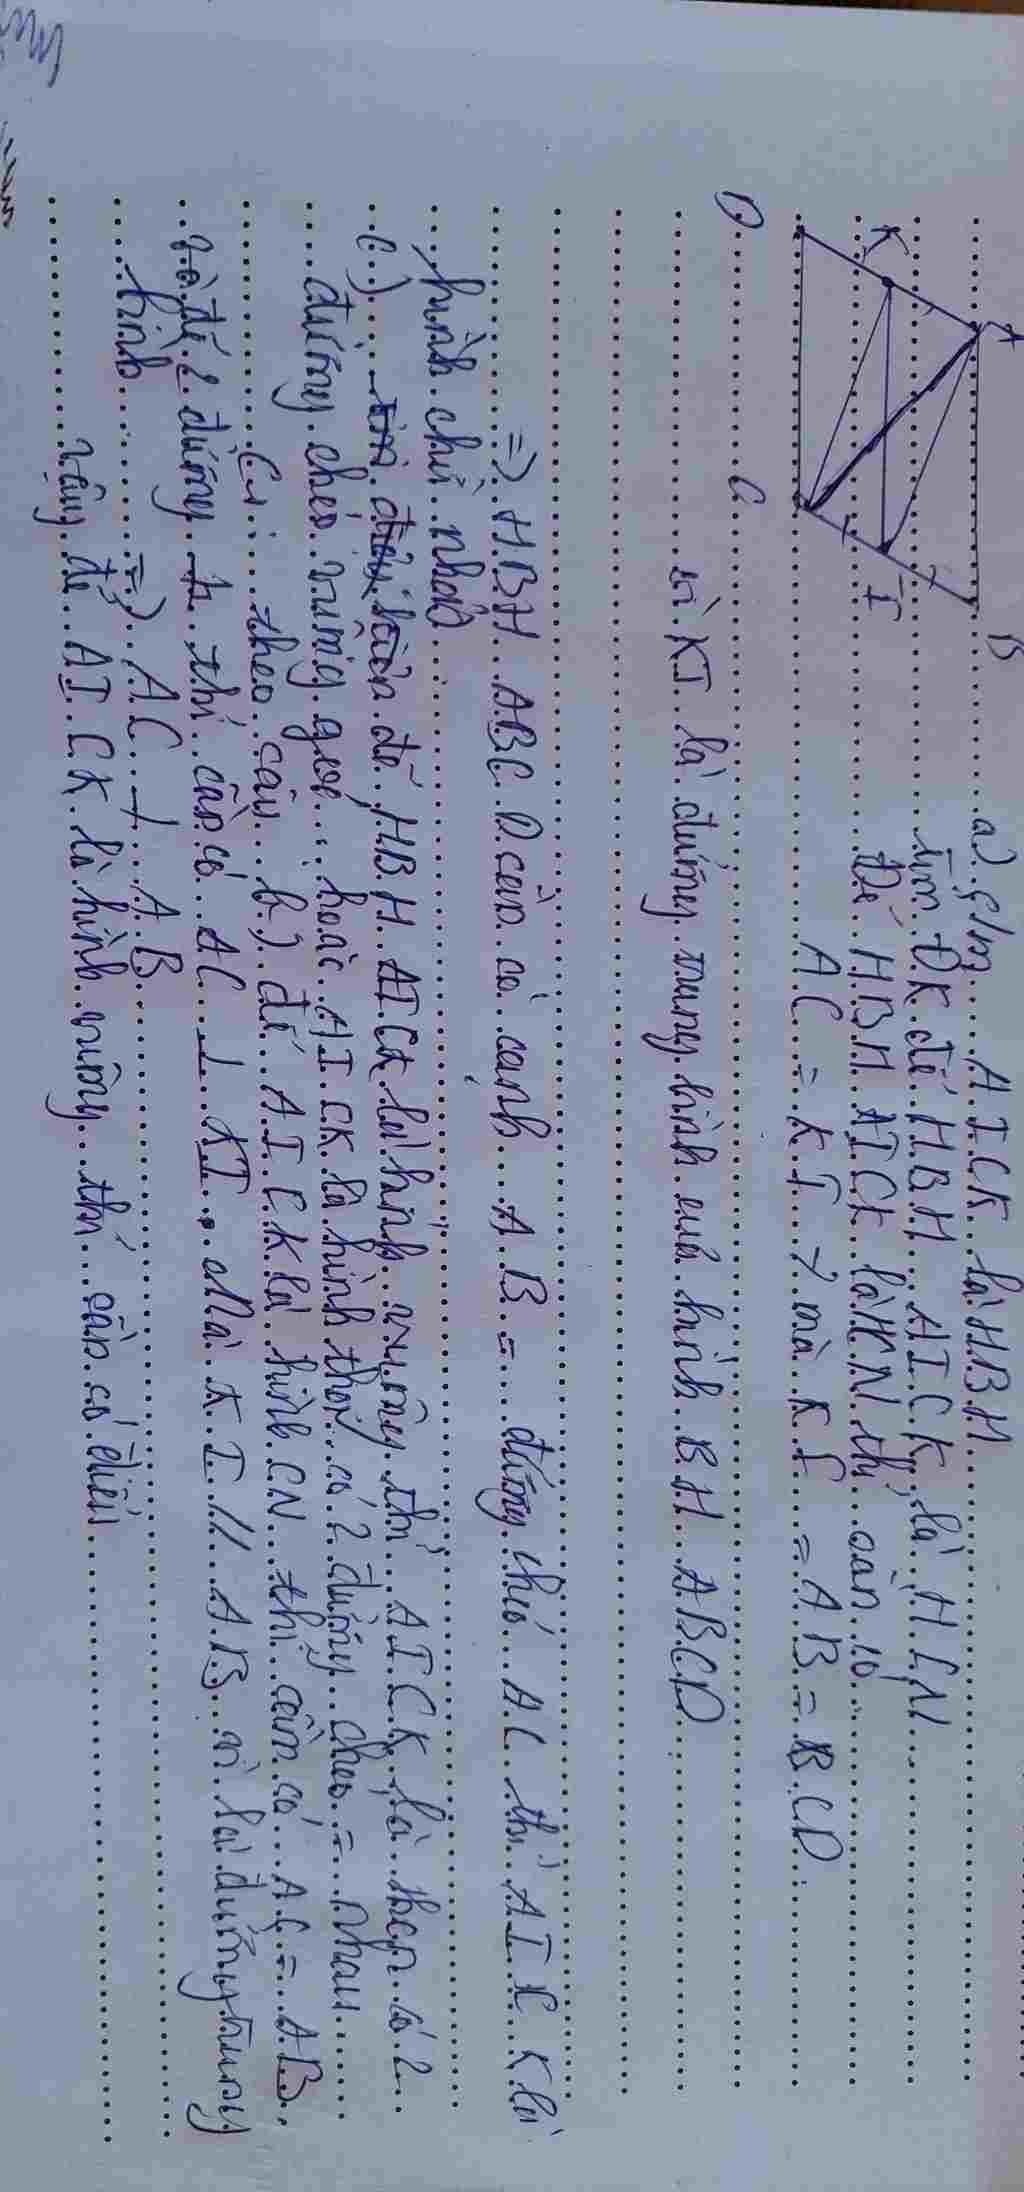 A
B
K
I
D
C
a) c/m AICK là HBH
tìm ĐK để HBH AICK là HCN
Để HBH AICK là HCN thì cần có
AC = KI, mà KI = AB = BCD
vì KI là đường trung bình của hình BH ABCD
=> HBH ABCD cần có cạnh AB = đường chéo AC thì AICK là
hình chữ nhật
c) điều kiện để HBH AICK là hình vuông thì AICK là thoi có 2
đường chéo vuông góc hoặc AICK là hình thoi có 2 đường chéo = nhau
C1: theo câu b) để AICK là hình CN thì cần có AC = AB,
và để 2 đường thì cần có AC ⊥ KI. Mà KI // AB vì là đường trung
bình => AC ⊥ AB
vậy để AICK là hình vuông thì cần có điều